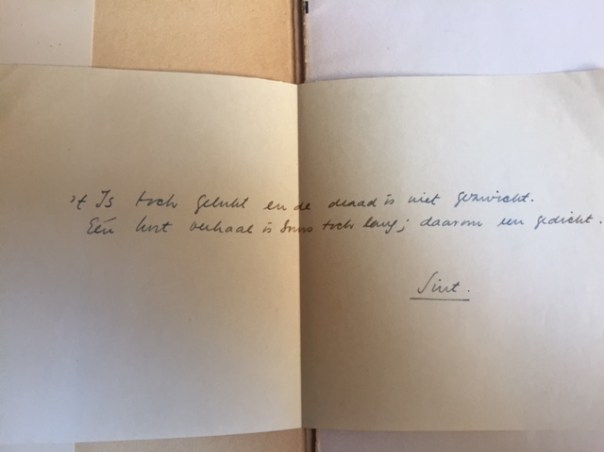 't Is toch gelukt en de draad is niet gezwicht.
Eén kort verhaal is soms toch lang; daarom een gedicht.
Sint.